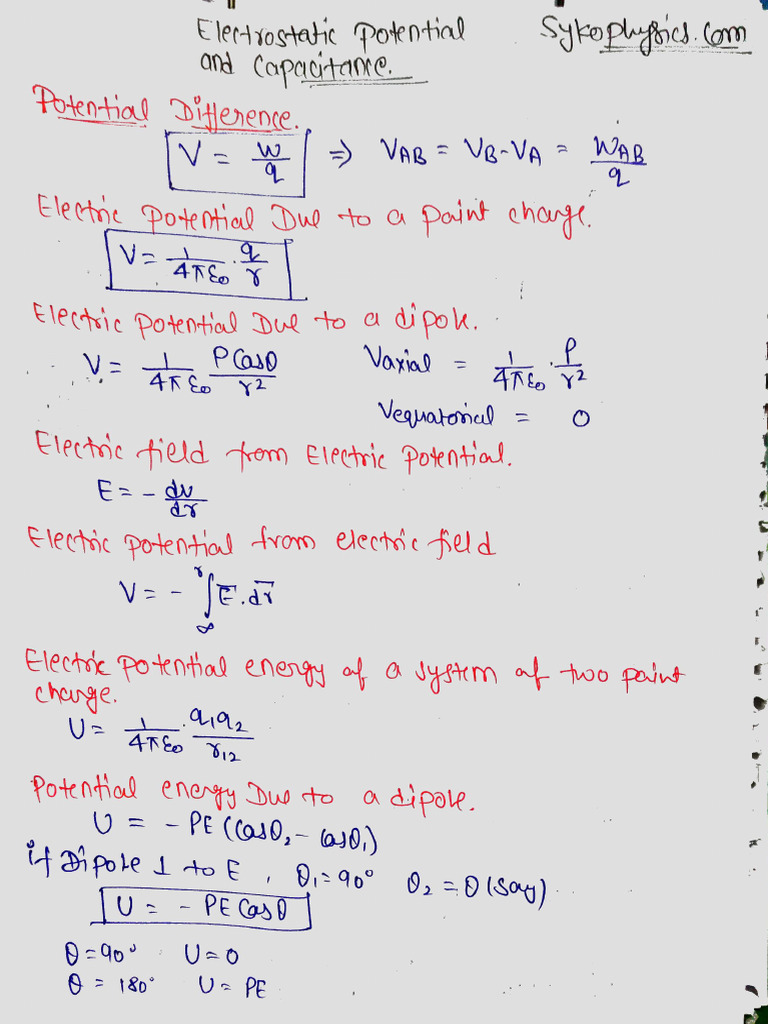 Electrostatic Potential Sykophysics.com
and Capacitance.
Potential Difference.
V = W/q ⇒ VAB = VB-VA = WAB/q
Electric potential Due to a paint charge.
V = 1/4πε0 · q/r
Electric potential Due to a dipole.
V = 1/4πε0 PCosθ/r² Vaxial = 1/4πε0 · P/r²
Vequatorial = 0
Electric field from Electric Potential.
E = - dv/dr
Electric potential from electric field
V = - ∫∞^r E̅.dr̅
Electric potential energy of a system of two paint
charge.
U = 1/4πε0 · q1q2/r12
Potential energy Due to a dipole.
U = - PE (Cosθ2 - Cosθ1)
if Dipole ⊥ to E, θ1 = 90° θ2 = θ (say)
U = - PE Cosθ
θ = 90° U = 0
θ = 180° U = PE